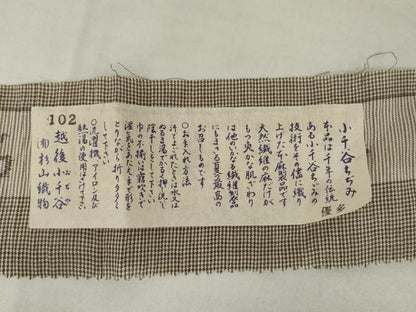 小千谷ちぢみ
本品は千年の伝統
ある小千谷ちぢみの
技術をその儘に織り
上げた本麻製品です
天然繊維の麻だけが
もつ爽かな肌ざわり
は他のいかなる繊維製品
にもまさる夏の最高の
お召しものです
○お手入れ方法
汗でよごれたときは水又は
ぬるま湯でかるく押し洗い
陰干しをして下さい
巾の不揃いは霧吹きで
湿気をあたえ手で形を
とりながら折りたたみ
して下さい
○洗濯機、アイロン及び
熱湯の使用はさけて下さい
102
越後小千谷
おぢや
㈲杉山織物